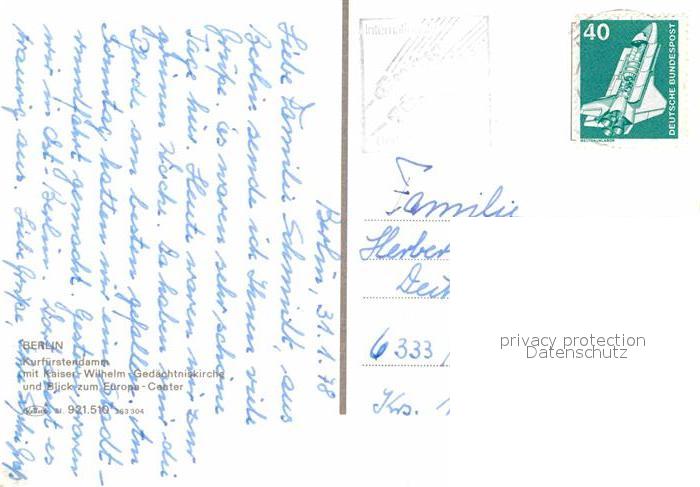 Berlin, 31.1.78
Liebe Familie Schmidt, aus
Berlin sende ich Ihnen viele
Grüße. Es waren sehr schöne
Tage hier. Heute waren wir zur
grünen Woche. Da haben mir die
Pferde am besten gefallen. Am
Sonntag hatten wir eine Stadt-
rundfahrt gemacht. Gestern waren
wir in Ost-Berlin. Dort sieht es
traurig aus. Liebe Grüße,
BERLIN
Kurfürstendamm
mit Kaiser-Wilhelm-Gedächtniskirche
und Blick zum Europa-Center
921.510 363304
Internationale
40
DEUTSCHE BUNDESPOST
WELTRAUMLABOR
Familie
Herber
Deu
6333
Krs.
privacy protection
Datenschutz